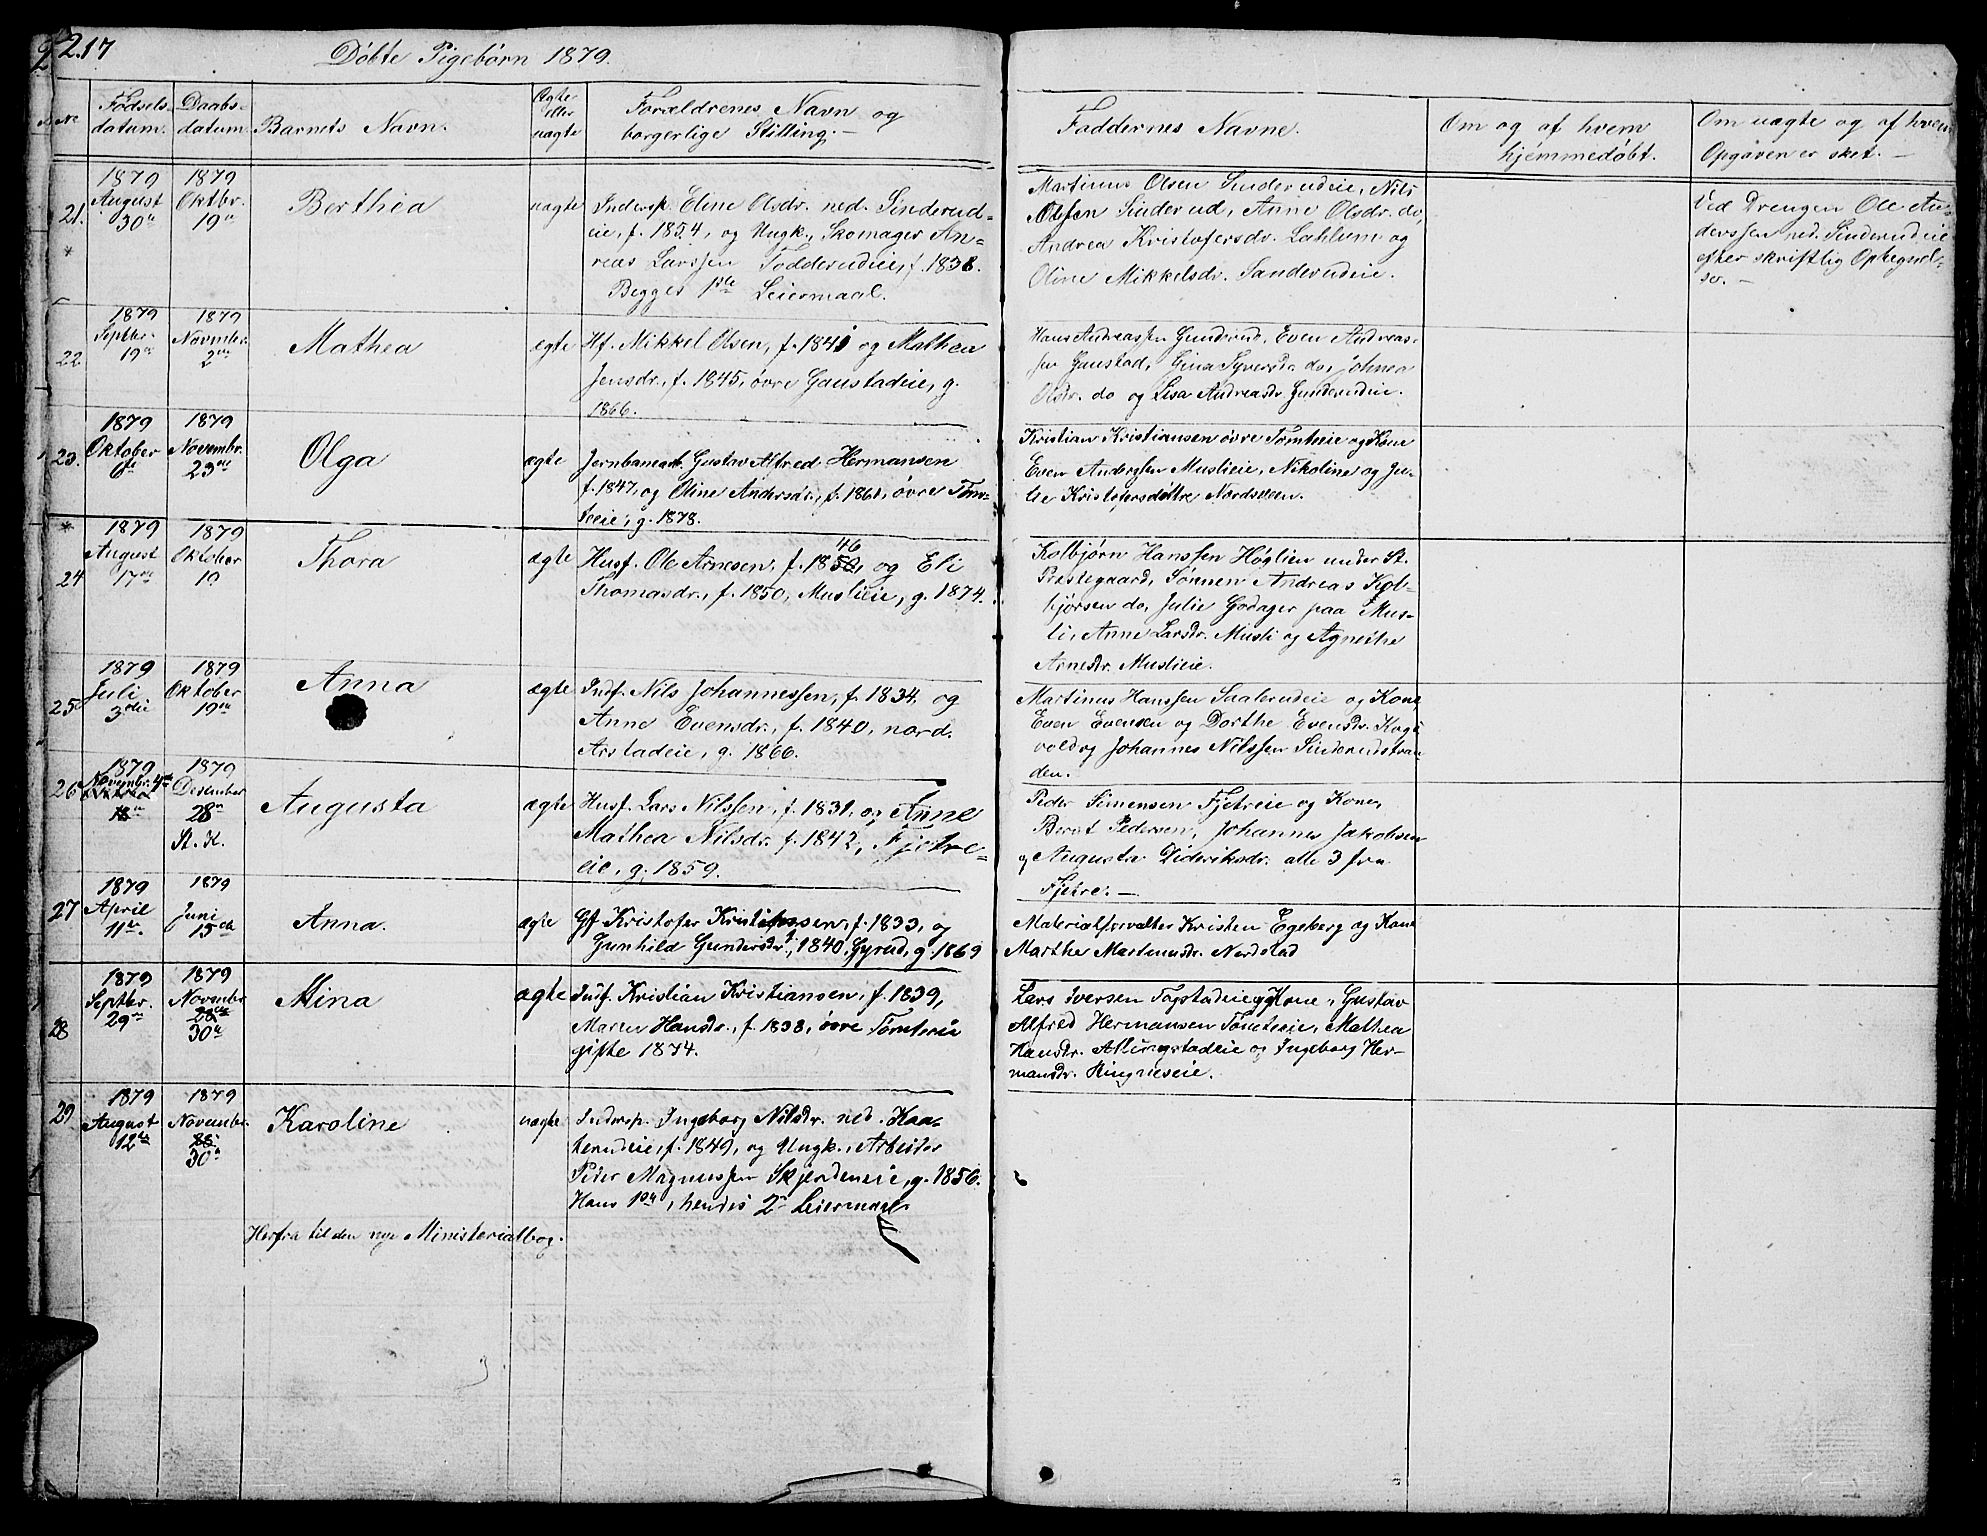 217
Døbte Pigebørn 1879.
No
Fødsels-
datum.
Daabs-
datum.
Barnets Navn.
Ægte
eller
uægte
Forældrenes Navn og
borgerlige Stilling.—
Faddernes Navne.
Om og af hvem
hjemmedøbt.
Om uægte og af hvem
Opgaven er sket.—
21.
*
1879
August
30te
1879
Oktbr.
19de
Berthea
uægte
Indersp. Eline Olsdr. ned. Sinderud-
eie, f. 1854, og Ungk., Skomager An-
reas Larssen Fodderudeie, f. 1838.
Begges 1ste Leiermaal.
Martinus Olsen Sinderudeie, Nils
Olsen Sinderud, Anne Olsdr. do,
Andrea Kristofersdr. Lahlum og
Oline Mikkelsdr. Sanderudeie.
Ved Drengen Ole An-
derssen ned. Sinderudeie
efter skriftlig Opbegnel-
se.—
22
1879
Septbr.
19de
1879
Novmbr.
2den
Mathea
ægte
Hf. Mikkel Olsen, f. 1841 og Mathea
Jensdr., f. 1845, øvre Gaustadeie, g.
1866.
Hans Andreassen Gunderud, Even Andreas-
sen Gaustad, Gina Syversdr. do, Johnea
Olsdr. do og Lisa Andreasdr. Gunderudeie.
23.
1879
Oktober
6te
1879
Novembr.
23de
Olga
ægte
Jernbanearb. Gustav Alfred Hermansen
f. 1847, og Oline Andersdr., f. 1861, øvre Tømt-
eeie, g. 1878.
Kristian Kristiansen øvre Tømteeie og Kone
Even Anderssen Muslieie, Nikoline og Ju-
lie Kristofersdøttre Nordsveen.
*
24
1879
August
17de
1879
Oktober
19
Thora
ægte
46
Husf. Ole Arnesen, f. 1850, og Eli
Thomasdr., f. 1850, Muslieie, g. 1874.
Kolbjørn Hanssen Høglien under St.
Præstegaard, Sønnen Andreas Kol-
bjørsen do, Julie Godager paa Mus-
li, Anne Larsdr. Musli og Agnethe
Arnesdr. Muslieie.
25
1879
Juli
3die
1879
Oktober
19de
Anna
ægte
Indf. Nils Johannessen, f. 1834 og
Anne Evensdr., f. 1840, nord.
Arstadeie, g. 1866.
Martinus Hanssen Saalerudeie og Kone,
Even Evensen og Dorthe Evensdr. Kogs
vold og Johannes Nilssen Sinderudstran
den.
26
1879
Novembr. 4de
18
1879
Desember
28de
St. K.
Augusta
ægte
Husf. Lars Nilssen, f. 1831, og Anne
Mathea Nilsdr. f. 1842, Fjetre-
eie, g. 1859.
Peder Simensen Fjetreie og Kone,
Bernt Pedersen, Johannes Jakobsen
og Augusta Dideriksdr. alle 3 fra
Fjetre.—
27
1879
April
11te
1879
Juni
15de
Anna.
ægte
Gf Kristofer Kristiansen, f. 1833, og
Gunhild Gundersdr., f. 1840, Gyrud, g. 1869
Materialforvalter Kristen Egeberg og Kone
Marthe Martinusdr. Nordstad
28
1879
Septbr.
29de
1879
Novembr
28de
30te
Mina
ægte
Indf. Kristian Kristiansen, f. 1839,
Maren Hansdr., f. 1838, øvre Tømteeie
gifte 1874.
Lars Iversen Fagstadeie og Kone, Gustav
Alfred Hermansen Tømteeie, Mathea
Hansdr. Allingstadeie og Ingeborg Her-
mansdr. Ringneseie.
29
1879
August
12te
1879
Novembr.
28
30te
Karoline
uægte
Indersp. Ingeborg Nilsdr. ned. Kaa-
terudeie, f. 1849, og Ungk., Arbeider
Peder Magnussen Skjerdeneie, g. 1856.
Hans 1ste, hendes 2det Leiermaal.
Herfra til den nye Ministerialbog.